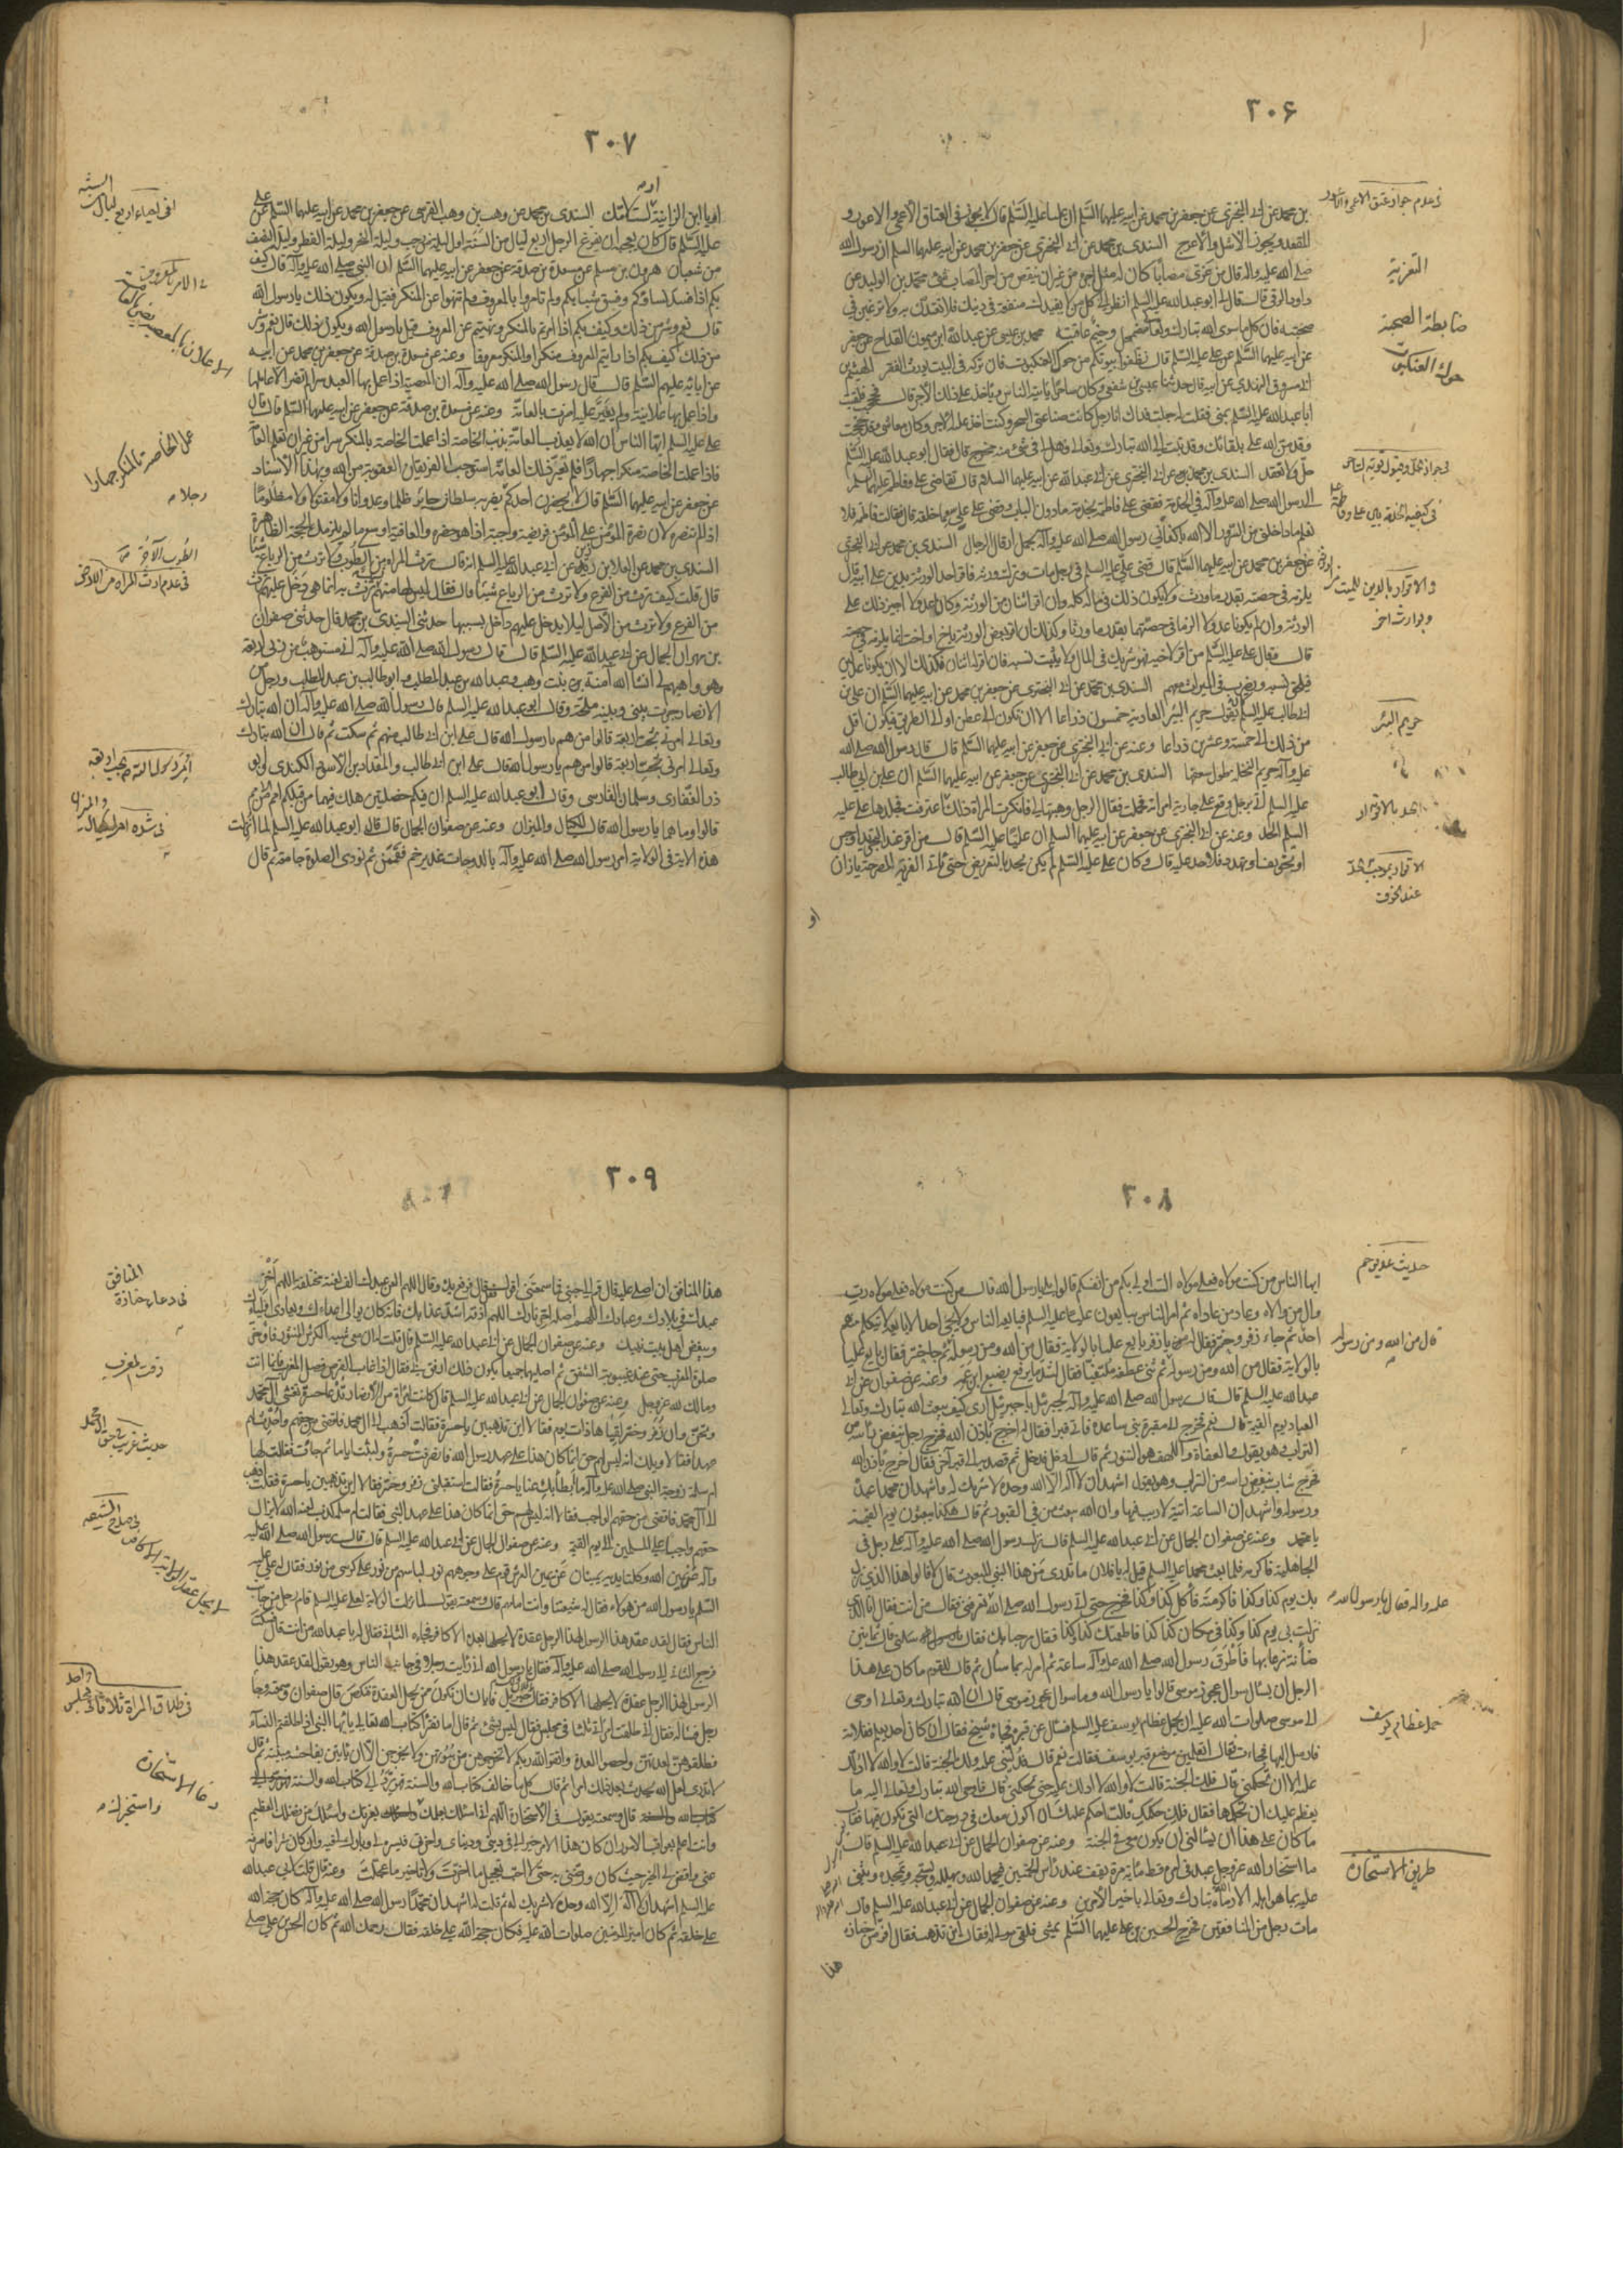 ٣٠۶
بن محمد عن ابي البختري عن جعفر بن محمد عن ابيه عليهما السلم ان عليا عليه السلم قال لا يجوز في العتاق الاعمى والاعور و
المقعد ويجوز الاشل والاعرج السندي بن محمد عن ابي البختري عن جعفر بن محمد عن ابيه عليهما السلم ان رسول الله
صلى الله عليه واله قال من عزى مصابا كان له مثل اجره من غير ان ينقص من اجر المصاب شئ محمد بن الوليد عن
داود الرقي قال قال لي ابو عبد الله عليه السلم انظر الى كل من لا يفيدك منفعة في دينك فلا تعتدن به ولا ترغبن في
صحبته فان كل ما سوى الله تبارك وتعالى مضمحل وخيم عاقبته محمد بن عيسى عن عبد الله بن ميمون القداح عن جعفر
عن ابيه عليهما السلم عن علي عليه السلم قال نظفوا بيوتكم من حوك العنكبوت فان تركه في البيت يورث الفقر الهيثم بن
ابي مسروق النهدي عن ابيه قال حدثنا عيسى بن شقفي وكان ساحرا يأتيه الناس وياخذ على ذلك الاجر قال فحججت فلقيت
ابا عبد الله عليه السلم بمنى فقلت له جعلت فداك انا رجل كانت صناعتي السحر وكنت اخذ عليه الاجر وكان معاشي وقد حججت
وقد من الله علي بلقائك وقد تبت الى الله تبارك وتعالى فهل لي في شئ منه مخرج قال فقال ابو عبد الله عليه السلم
حل ولا تعقد السندي بن محمد عن ابي البختري عن ابي عبد الله عن ابيه عليهما السلام قال تقاضى علي وفاطمة عليهما السلم
الى رسول الله صلى الله عليه وآله في الخدمة فقضى على فاطمة بخدمة ما دون الباب وقضى على علي بما خلفه قال فقالت فاطمة فلا
يعلم ما داخلني من السرور الا الله باكفائي رسول الله صلى الله عليه وآله تحمل ارقاب الرجال السندي بن محمد عن ابي البختري
عن جعفر بن محمد عن ابيه عليهما السلم قال قضى علي عليه السلم في رجل مات وترك ورثة فاقر احد الورثة بدين على ابيه قال
يلزمه في حصته بقدر ما ورث ولا يكون ذلك في ماله كله وان اقر اثنان من الورثة وكانا عدلا اجيز ذلك على
الورثة وان لم يكونا عدلا الزما في حصتهما بقدر ما ورثا وكذلك ان اقر بعض الورثة باخ او اخت انما يلزمه في حصته
قال وقال علي عليه السلم من اقر لاخيه فهو شريك في المال ولا يثبت نسبه فان اقر اثنان فكذلك الا ان يكونا عدلين
فيلحق نسبه ويضرب في الميراث معهم السندي بن محمد عن ابي البختري عن جعفر بن محمد عن ابيه عليهما السلم ان علي بن
ابي طالب عليه السلم كان يقول حريم البئر العادية خمسون ذراعا الا ان تكون الى عطن او الى الطريق فيكون اقل
من ذلك الى خمسة وعشرين ذراعا وعنه عن ابي البختري عن جعفر عن ابيه عليهما السلم قال قال رسول الله صلى الله
عليه وآله حريم النخلة طول سعفها السندي بن محمد عن ابي البختري عن جعفر عن ابيه عليهما السلم ان علي بن ابي طالب
عليه السلم اتي برجل وقع على جارية امراته فحملت فقال الرجل وهبتها لي فانكرت المراة
السلم الحد وعنه عن ابي البختري عن جعفر عن ابيه عليهما السلم ان عليا عليه السلم قال من اقر عند تجريد او حبس
او تخويف او تهدد فلا حد عليه قال وكان علي عليه السلم لم يكن يحد بالتعريض حتى يأتي الفرية المصرحة يا زان
او
التعزية
ضابطة الصحبة
حوك العنكبوت
حريم البئر
الحد بالاقرار
الاقرار بموجب الحد
عند الخوف
٣٠٧
او يا ابن الزانية او لست لابيك السندي بن محمد عن وهب بن وهب القرشي عن جعفر بن محمد عن ابيه عليهما السلم عن علي
عليه السلم قال كان يعجبه ان يفرغ الرجل اربع ليال من السنة اول ليلة من رجب وليلة النحر وليلة الفطر وليلة النصف
من شعبان هرون بن مسلم عن مسعدة بن صدقة عن جعفر عن ابيه عليهما السلم ان النبي صلى الله عليه وآله قال كيف
بكم اذا فسد نساؤكم وفسق شبابكم ولم تامروا بالمعروف ولم تنهوا عن المنكر فقيل له ويكون ذلك يا رسول الله
قال نعم وشر من ذلك وكيف بكم اذا امرتم بالمنكر ونهيتم عن المعروف قيل يا رسول الله ويكون ذلك قال نعم وشر
من ذلك كيف بكم اذا رايتم المعروف منكرا والمنكر معروفا وعنه عن مسعدة بن صدقة عن جعفر بن محمد عن ابيه
عن ابائه عليهم السلم قال قال رسول الله صلى الله عليه وآله ان المعصية اذا عمل بها العبد سرا لم تضر الا عاملها
واذا عمل بها علانية ولم يغير عليه اضرت بالعامة وعنه عن مسعدة بن صدقة عن جعفر عن ابيه عليهما السلم قال قال
علي عليه السلم ايها الناس ان الله لا يعذب العامة بذنب الخاصة اذا عملت الخاصة بالمنكر سرا من غير ان تعلم العامة
فاذا عملت الخاصة منكرا جهارا فلم تغير ذلك العامة استوجب الفريقان العقوبة من الله وبهذا الاسناد
عن جعفر عن ابيه عليهما السلم قال لا يحضرن احدكم يضربه سلطان جائر ظلما وعدوانا ولا مقتولا ولا مظلوما
اذا لم تنصره لان نصرة المؤمن على المؤمن فريضة واجبة اذا هو حضره والعافية اوسع ما لم يلزمك الحجة الظاهرة
السندي بن محمد عن العلا بن رزين عن ابي عبد الله عليه السلم انه قال ترث المراة من الطوب ولا ترث من الرباع شيئا
قال قلت كيف ترث من الفرع ولا ترث من الرباع شيئا قال فقال ليس لها منهم نسب ترث به انما هي دخل عليهم ترث
من الفرع ولا ترث من الاصل ليلا يدخل عليهم داخل بسببها حدثني السندي بن محمد قال حدثني صفوان
بن مهران الجمال عن ابي عبد الله عليه السلم قال قال رسول الله صلى الله عليه وآله اني مستوهب من ربي اربعة
وهو واهبهم لي انشا الله آمنة بنت وهب وعبد الله بن عبد المطلب وابو طالب بن عبد المطلب ورجل من
الانصار جرت بيني وبينه ملحة وقال ابو عبد الله عليه السلم قال رسول الله صلى الله عليه وآله ان الله تبارك
وتعالى امرني بحب اربعة قالوا من هم يا رسول الله قال علي ابن ابي طالب منهم ثم سكت ثم قال ان الله تبارك
وتعالى امرني بحب اربعة قالوا من هم يا رسول الله قال علي ابن ابي طالب والمقداد بن الاسود الكندي وابو
ذر الغفاري وسلمان الفارسي وقال ابو عبد الله عليه السلم ان فيكم خصلتين هلك فيهما من قبلكم امم من الامم
قالوا وما هما يا رسول الله قال المكيال والميزان وعنه عن صفوان الجمال قال قال ابو عبد الله عليه السلم لما انزلت
هذه الاية في الولاية امر رسول الله صلى الله عليه وآله بالدوحات غدير خم فقممن ثم نودي الصلوة جامعة ثم قال
في احياء اربع ليال من السنة
عمل الخاصة بالمنكر جهارا
في عدم ارث المراة من الارض
٣٠٨
ايها الناس من كنت مولاه فعلي مولاه الست اولى بكم من انفسكم قالوا بلى يا رسول الله قال من كنت مولاه فعلي مولاه رب
وال من والاه وعاد من عاداه ثم امر الناس يبايعون عليا عليه السلم فبايعه الناس لا يجئ احد الا بايعه لا يتكلم منهم
احد ثم جاء زفر وحبتر فقال له يا زفر بايع عليا بالولاية فقال من الله ومن رسوله ثم جاء حبتر فقال بايع عليا
بالولاية فقال من الله ومن رسوله ثم ثنى عطفه ملتفتا فقال لشد ما يرفع بضبع ابن عمه وعنه عن صفوان عن ابي
عبد الله عليه السلم قال قال رسول الله صلى الله عليه وآله لجبرئيل يا جبرئيل ارني كيف يبعث الله تبارك وتعالى
العباد يوم القيمة قال نعم فخرج الى مقبرة بني ساعدة فاتى قبرا فقال له اخرج باذن الله فخرج رجل ينفض رأسه من
التراب وهو يقول والهفاه واللهف هو الثبور ثم قال ادخل فدخل ثم قصد به الى قبر آخر فقال اخرج باذن الله
فخرج شاب ينفض راسه من التراب وهو يقول اشهد ان لا اله الا الله وحده لا شريك له واشهد ان محمدا عبده
ورسوله واشهد ان الساعة آتية لا ريب فيها وان الله يبعث من في القبور ثم قال هكذا يبعثون يوم القيمة
يا محمد وعنه عن صفوان الجمال عن ابي عبد الله عليه السلم قال نزل رسول الله صلى الله عليه وآله على رجل في
الجاهلية فاكرمه فلما بعث محمد عليه السلم قيل له يا فلان ما تدري من هذا النبي المبعوث قال لا قالوا هذا الذي نزل
بك يوم كذا وكذا فاكرمته فأكل كذا وكذا فخرج حتى اتى رسول الله صلى الله عليه وآله فقال يا رسول الله تعرفني فقال من انت فقال انا الذي
نزلت بي يوم كذا وكذا في مكان كذا وكذا فاطعمتك كذا وكذا فقال مرحبا بك سلني قال ثمانين
ضأنة برعاتها فاطرق رسول الله صلى الله عليه وآله ساعة ثم امر له بما سأل ثم قال للقوم ما كان على هذا
الرجل ان يسأل سؤال عجوز موسى قالوا يا رسول الله وما سؤال عجوز موسى قال ان الله تبارك وتعالى اوحى
الى موسى صلوات الله عليه ان يحمل عظام يوسف عليه السلم فسال عن قبره فجاءه شيخ فقال ان كان احد يعلم ففلانة
فارسل اليها فجاءت فقال اتعلمين موضع قبر يوسف فقالت نعم قال فدليني عليه ولك الجنة قالت لا والله لا ادلك
عليه الا ان تحكمني قال ولك الجنة قالت لا والله لا ادلك عليه حتى تحكمني قال فاوحى الله تبارك وتعالى اليه ما
يعظم عليك ان تحكمها فقال فلك حكمك قالت احكم عليك ان اكون معك في درجتك التي تكون فيها فقال
ما كان على هذا ان يسألني ان يكون معي في الجنة وعنه عن صفوان الجمال عن ابي عبد الله عليه السلم قال
ما استخار الله عز وجل عبد في امر قط مائة مرة يقف عند رأس الحسين فيحمد الله ويهلله ويسبحه ويمجده ويثني
عليه بما هو اهله الا رماه الله تبارك وتعالى باخير الامرين وعنه عن صفوان الجمال عن ابي عبد الله عليه السلم قال
مات رجل من المنافقين فخرج الحسين بن علي عليهما السلم يمشي فلقي مولى له فقال اين تذهب فقال افر من جنازة
هذا
حديث غدير خم
قال من الله ومن رسوله
عليه واله فقال يا رسول الله
حمل عظام يوسف
طريق الاستخارة
٣٠٩
هذا المنافق ان اصلي عليه قال قم الى جنبي فما سمعتني اقول فقل قال فرفع يديه وقال اللهم العن عبدك الف لعنة مختلفة اللهم اخز
عبدك في بلادك وعبادك اللهم اصله حر نارك اللهم اذقه اشد عذابك فانه كان يوالي اعداءك ويعادي اولياءك
ويبغض اهل بيت نبيك وعنه عن صفوان الجمال عن ابي عبد الله عليه السلم قال قلت له ان معي شبه الكرش المنثور فاوخر
صلوة المغرب حتى عند غيبوبة الشفق ثم اصليهما جميعا يكون ذلك ارفق بي فقال اذا غاب القرص فصل المغرب فانما انت
ومالك لله عز وجل وعنه عن صفوان الجمال عن ابي عبد الله عليه السلم قال كانت امراة من الانصار تدعى حسرة تغشى آل محمد
وتحن وان زفر وحبتر لقياها ذات يوم فقالا اين تذهبين يا حسرة فقالت اذهب الى ال محمد فاقضي من حقهم واحدث بهم
عهدا فقالا ويلك انه ليس لهم حق انما كان هذا على عهد رسول الله فانصرفت حسرة ولبثت اياما ثم جاءت فقالت لها
ام سلمة زوجة النبي صلى الله عليه وآله ما ابطأ بك عنا يا حسرة فقالت استقبلني زفر وحبتر فقالا اين تذهبين يا حسرة فقلت اذهب
الى آل محمد فاقضي من حقهم الواجب فقالا انه ليس لهم حق انما كان هذا على عهد النبي فقالت ام سلمة كذبا لعنهما الله لا يزال
حقهم واجبا على المسلمين الى يوم القيمة وعنه عن صفوان الجمال عن ابي عبد الله عليه السلم قال قال رسول الله صلى الله عليه
وآله عن يمين الله وكلتا يديه يمينان عن يمين العرش قوم على وجوههم نور لباسهم من نور على كرسي من نور فقال له علي عليه
السلم يا رسول الله من هؤلاء فقال له شيعتنا وانت امامهم قال وسمعته يقول لما نزلت الولاية لعلي عليه السلم قام رجل من جانب
الناس فقال لقد عقد هذا الرسول لهذا الرجل عقدة لا يحلها بعده الا كافر فجاءه الثاني فقال له يا عبد الله من انت قال فسكت
فرجع الثاني الى رسول الله صلى الله عليه وآله فقال يا رسول الله اني رايت رجلا في جانب الناس وهو يقول لقد عقد هذا
الرسول لهذا الرجل عقدة لا يحلها الا كافر فقال فاياك ان تكون ممن يحل العقدة فنكص قال صفوان وسمعته وجاء
رجل فسأله فقال اني طلقت امراتي ثلاثا في مجلس فقال ليس بشئ ثم قال اما تقرأ كتاب الله تعالى يا ايها النبي اذا طلقتم النساء
فطلقوهن لعدتهن واحصوا العدة واتقوا الله ربكم لا تخرجوهن من بيوتهن ولا يخرجن الا ان ياتين بفاحشة مبينة ثم قال
لا تدري لعل الله يحدث بعد ذلك امرا ثم قال كل ما خالف كتاب الله والسنة فهو يرد الى كتاب الله والسنة
قال وسمعته يقول في الاستخارة اللهم اني اسئلك بعلمك واستخيرك بعزتك واسئلك من فضلك العظيم
وانت اعلم بعواقب الامور ان كان هذا الامر خيرا لي في ديني ودنياي واخرتي فيسره لي وبارك لي فيه وان كان شرا فاصرفه
عني واقض لي الخير حيث كان ورضني به حتى لا احب تعجيل ما اخرت ولا تاخير ما عجلت وعنه قال قلت لابي عبد الله
عليه السلم اشهد ان لا اله الا الله وحده لا شريك له ثم قلت له اشهد ان محمدا رسول الله صلى الله عليه وآله كان حجة الله
على خلقه ثم كان امير المؤمنين صلوات الله عليه وكان حجة الله على خلقه فقال رحمك الله ثم كان الحسن بن علي صلى
المنافق
في دعاء جنازة
وقت المغرب
في طلاق المراة ثلاثا في مجلس واحد
دعاء الاستخارة